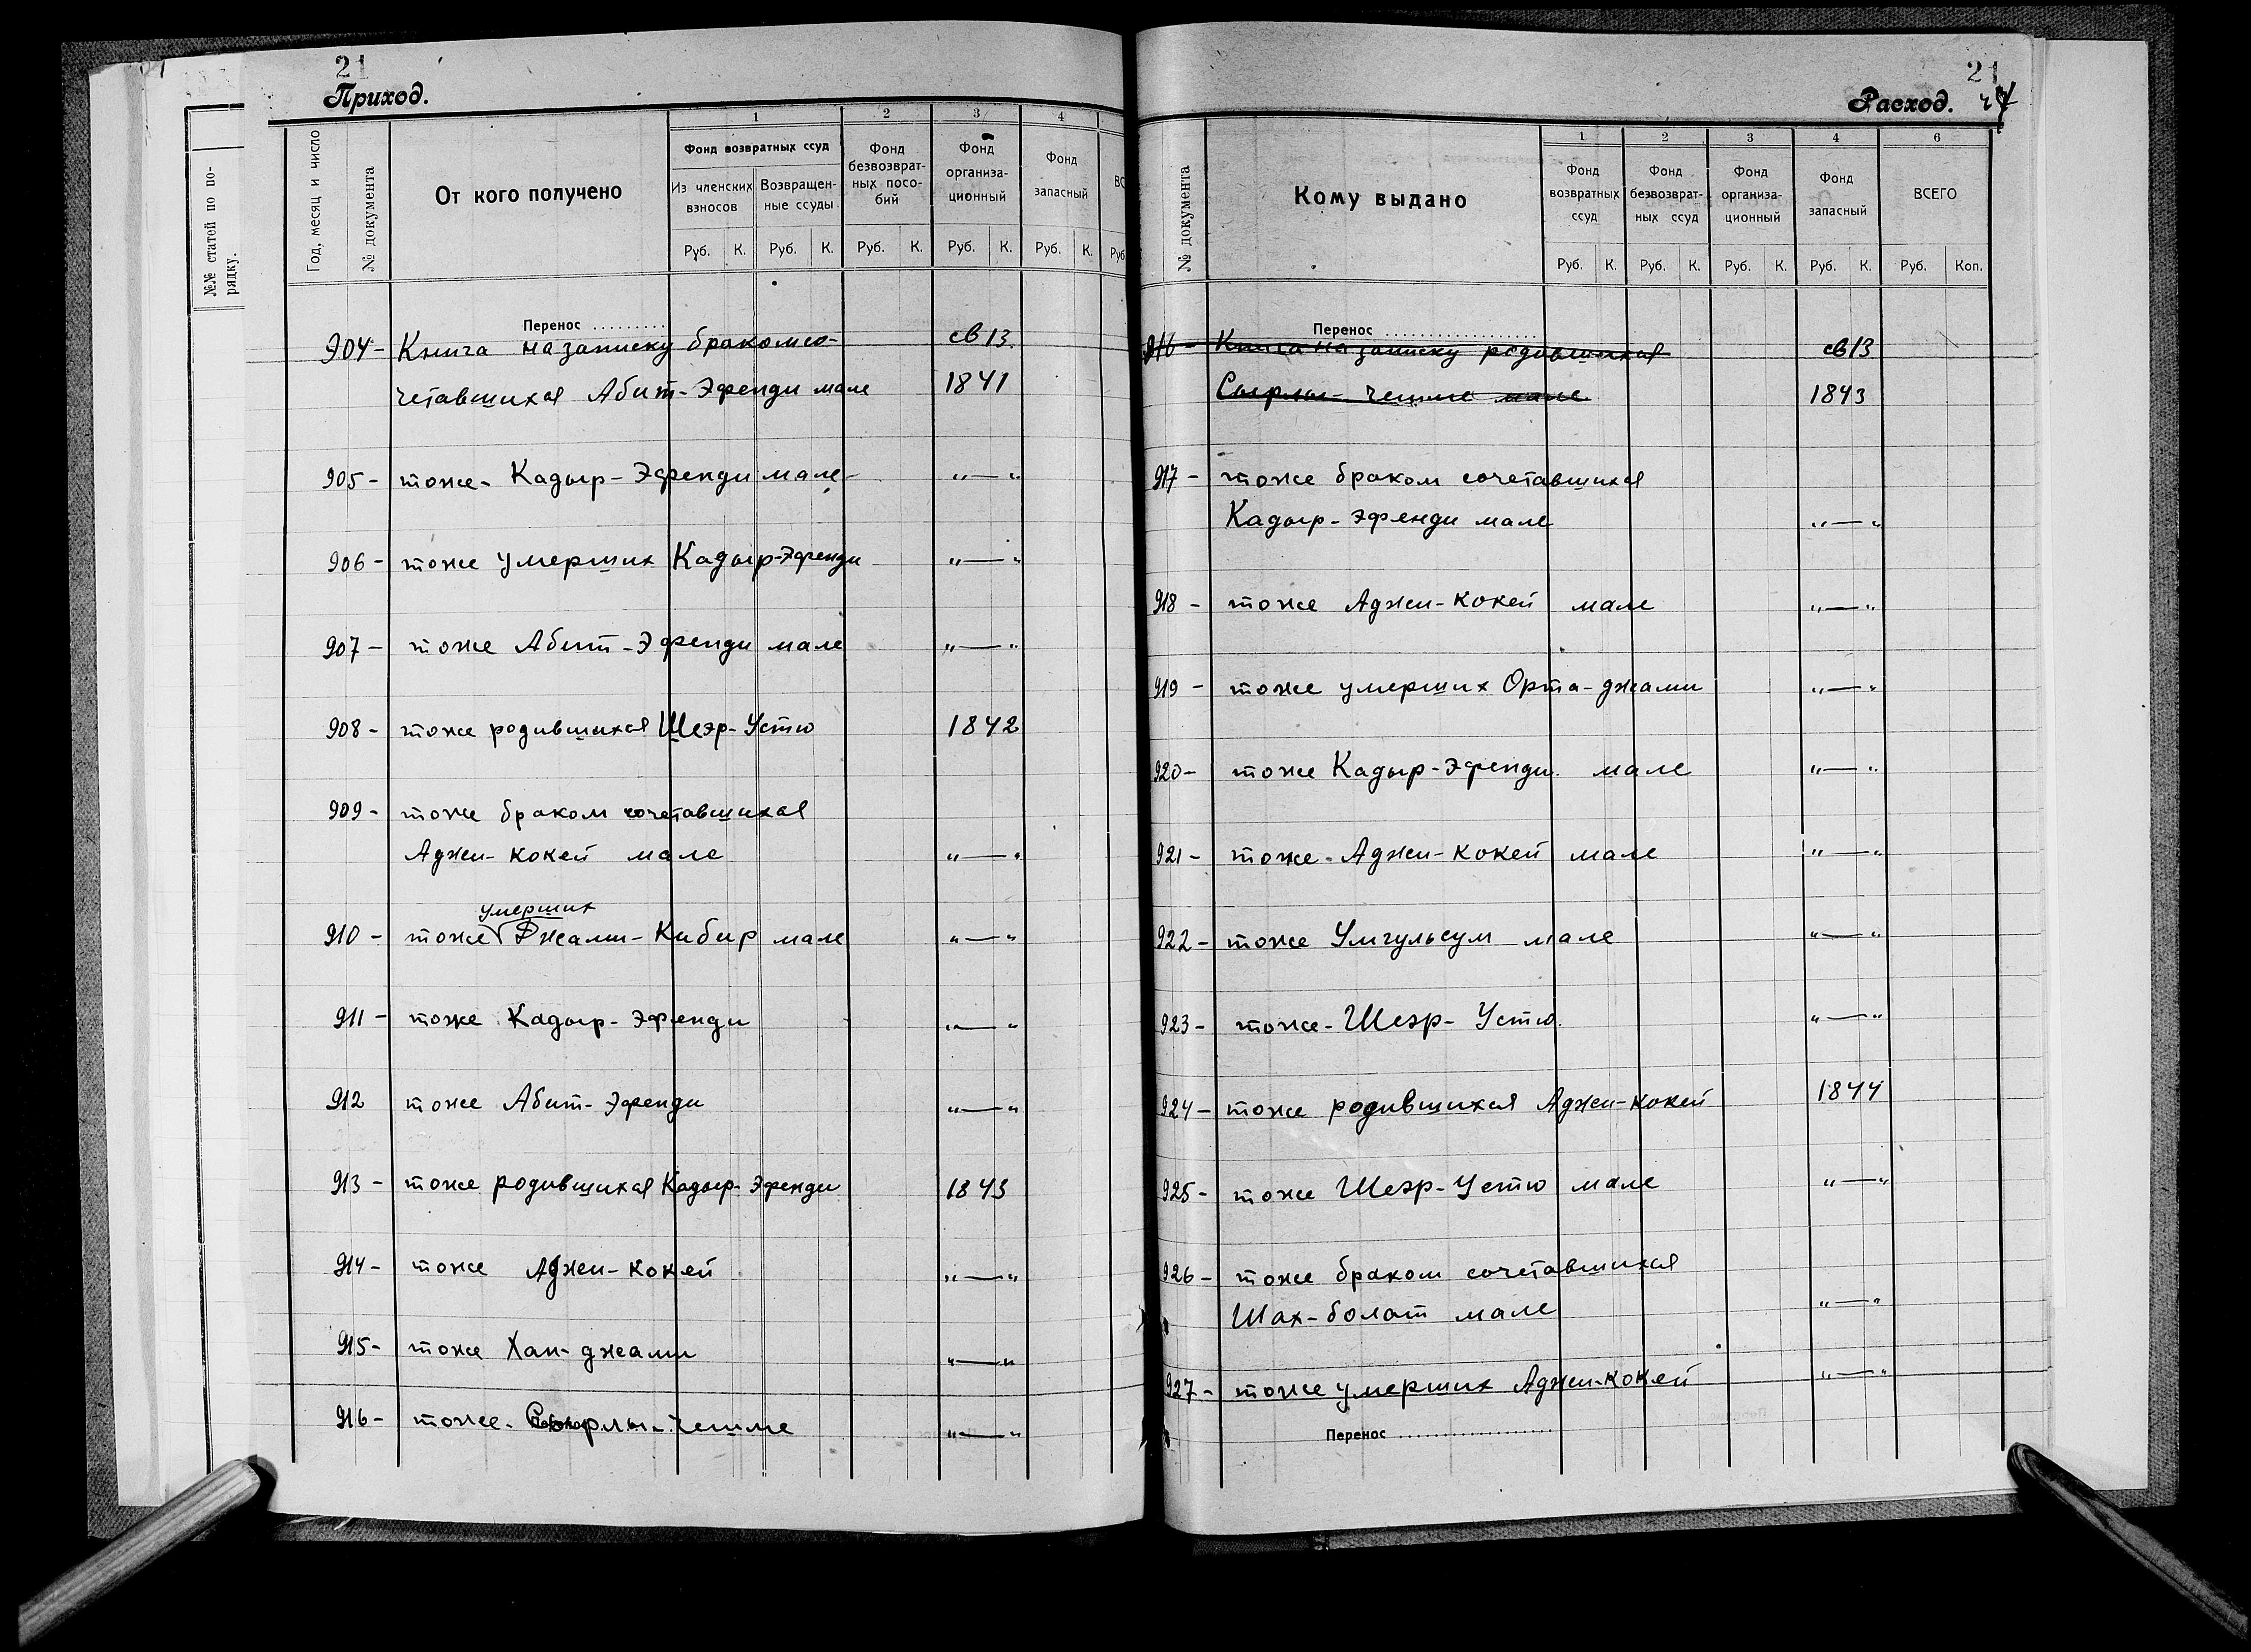 21
Приход.
№№ статей по порядку.
Год, месяц и число
№ документа
От кого получено
1
Фонд возвратных ссуд
Из членских взносов
Возвращен-ные ссуды
2
Фонд безвозврат-ных посо-бий
3
Фонд организа-ционный
4
Фонд запасный
Руб. К. Руб. К. Руб. К. Руб. К. Руб. К. Руб
Перенос
904- Книга на записку бракомсо- св 13
четавшихся Абит-Эфенди мале 1841
905- тоже- Кадыр-Эфенди мале- „—„
906- тоже умерших Кадыр-Эфенди „—„
907- тоже Абит-Эфенди мале „—„
908- тоже родившихся Шеэр-Устю 1842
909- тоже браком сочетавшихся
Аджи-кокей мале „—„
умерших
910- тоже Джами-Кибир мале „—„
911- тоже Кадыр-Эфенди „—„
912 тоже Абит-Эфенди „—„
913- тоже родившихся Кадыр-Эфенди 1843
914- тоже Аджи-кокей „—„
915- тоже Хан-джами „—„
916- тоже- Сырлы-чешме „—„
21
Расход.
№ документа
Кому выдано
1
Фонд возвратных ссуд
2
Фонд безвозврат-ных ссуд
3
Фонд организа-ционный
4
Фонд запасный
6
ВСЕГО
Руб. К. Руб. К. Руб. К. Руб. К. Руб. Коп.
Перенос
916- Книга на записку родившихся св 13
Сырлы-чешме мале 1843
917- тоже браком сочетавшихся
Кадыр-эфенди мале „—„
918- тоже Аджи-кокей мале „—„
919- тоже умерших Орта-джами „—„
920- тоже Кадыр-Эфенди мале „—„
921- тоже- Аджи-кокей мале „—„
922- тоже Умгульсум мале „—„
923- тоже- Шеэр-Устю. „—„
924- тоже родившихся Аджи-кокей 1844
925- тоже Шеэр-Устю мале „—„
926- тоже браком сочетавшихся
Шах-болат мале „—„
927- тоже умерших Аджи-кокей „—„
Перенос